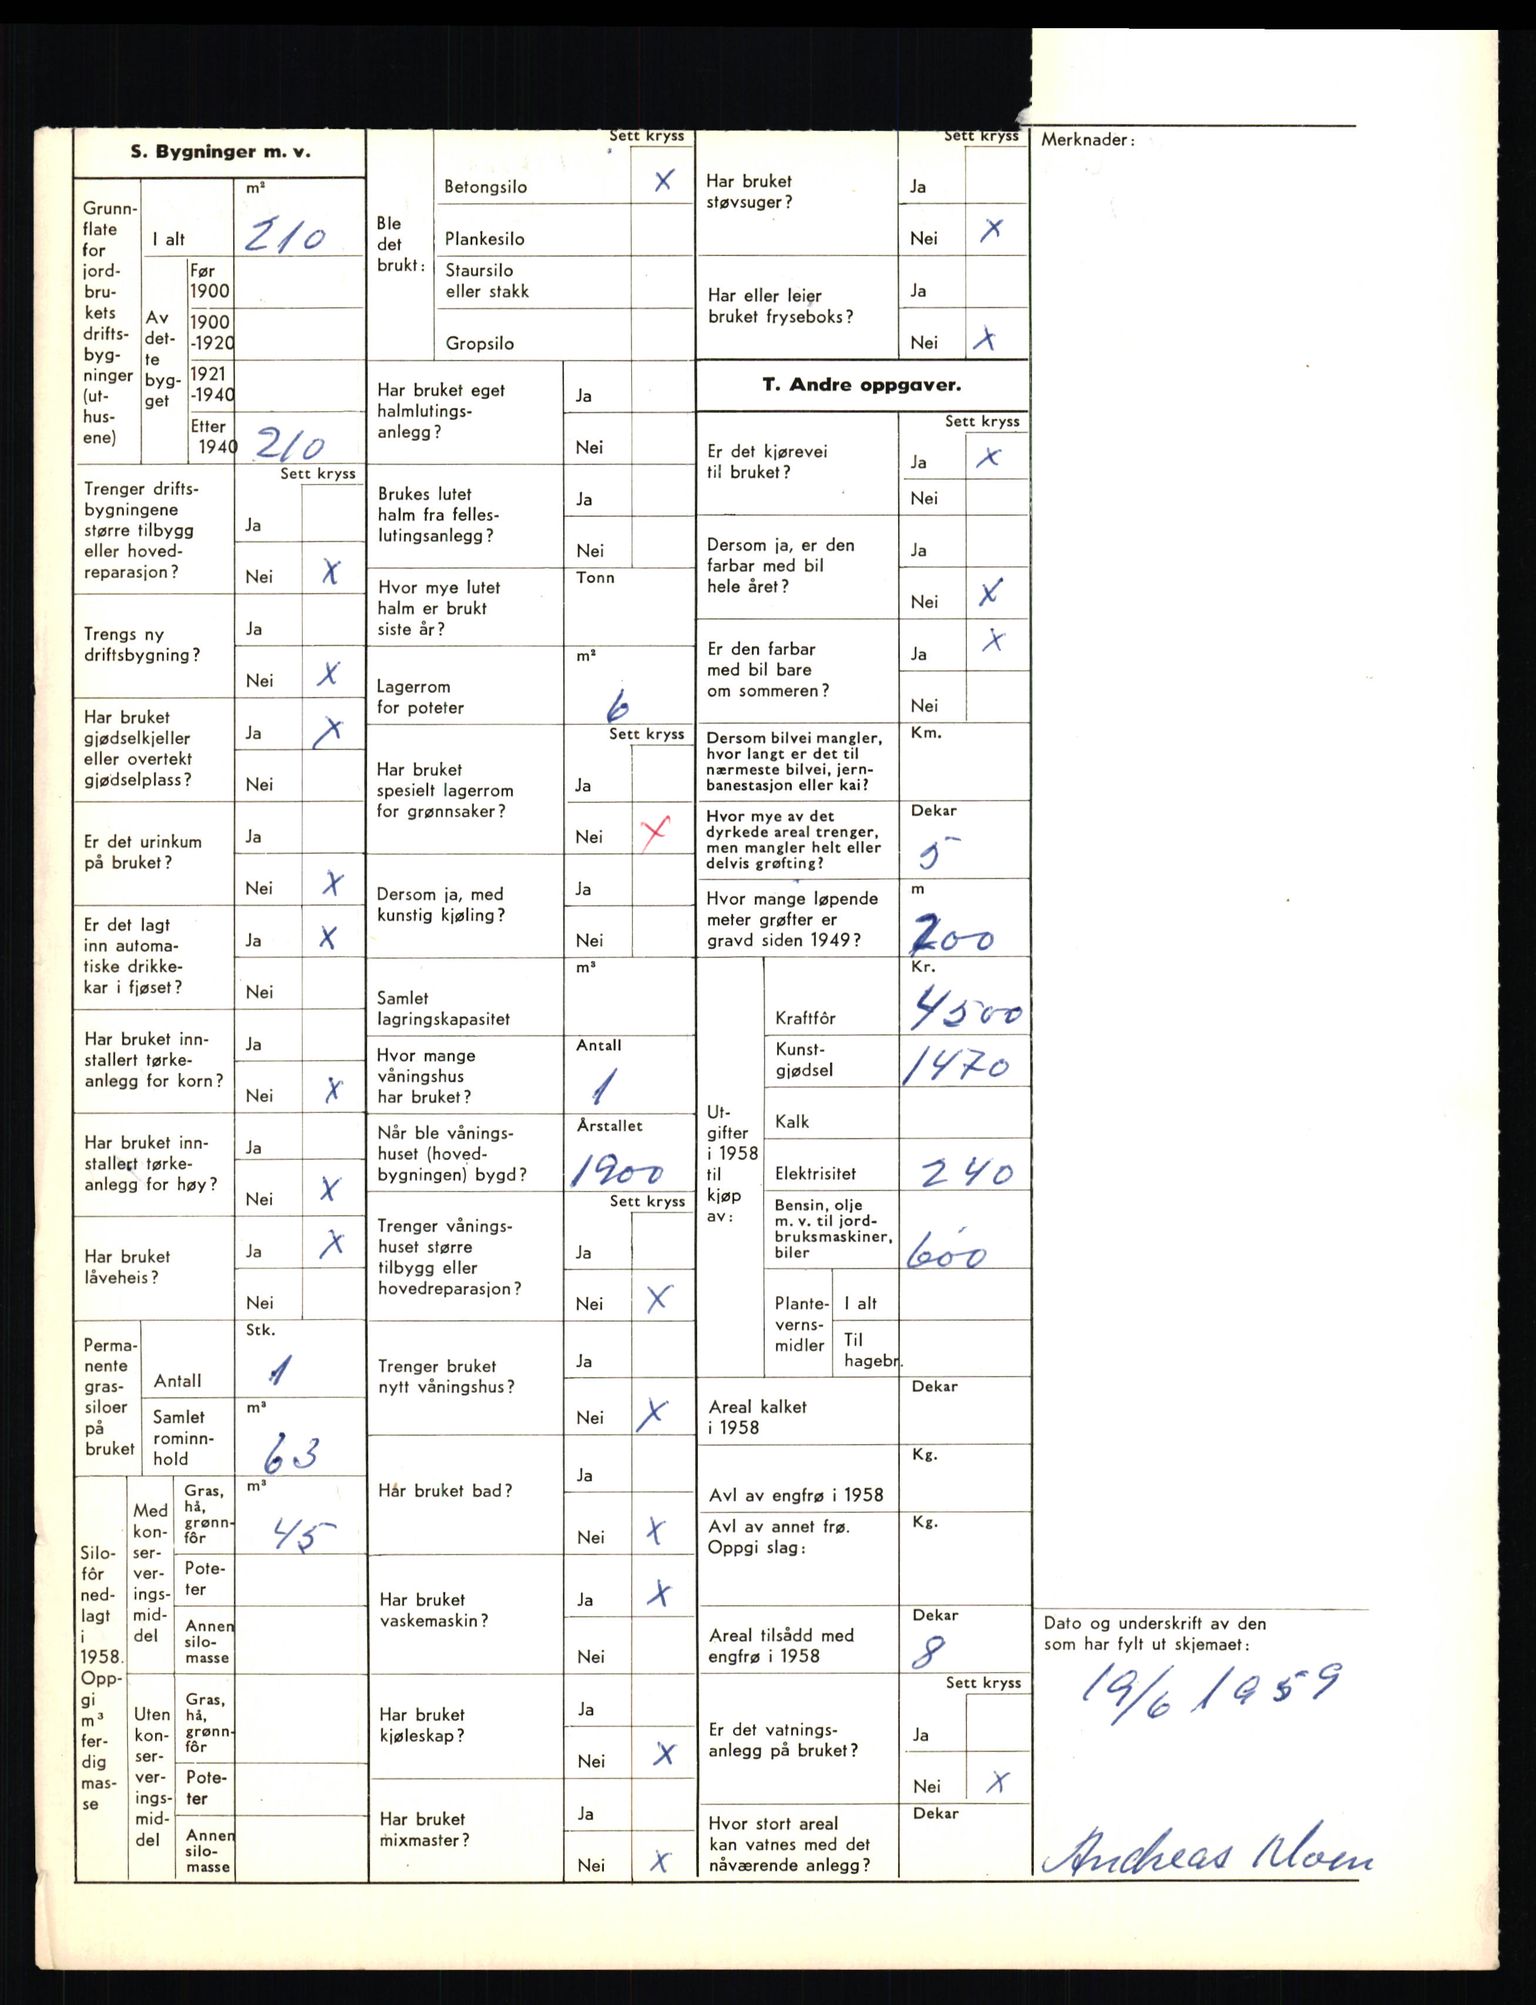 S. Bygninger m. v.
Grunn-
flate
for
jord-
bru-
kets
drifts-
byg-
ninger
(ut-
hus-
ene)
m²
I alt 210
Av
det-
te
byg-
get
Før
1900
1900
-1920
1921
-1940
Etter
1940 210
Sett kryss
Trenger drifts-
bygningene
større tilbygg
eller hoved-
reparasjon?
Ja
Nei X
Trengs ny
driftsbygning?
Ja
Nei X
Har bruket
gjødselkjeller
eller overtekt
gjødselplass?
Ja X
Nei
Er det urinkum
på bruket?
Ja
Nei X
Er det lagt
inn automa-
tiske drikke-
kar i fjøset?
Ja X
Nei
Har bruket inn-
stallert tørke-
anlegg for korn?
Ja
Nei X
Har bruket inn-
stallert tørke-
anlegg for høy?
Ja
Nei X
Har bruket
låveheis?
Ja X
Nei
Perma-
nente
gras-
siloer
på
bruket
Stk.
Antall 1
Samlet
rominn-
hold
m³
63
Silo-
fôr
ned-
lagt
i
1958.
Opp-
gi
m³
fer-
dig
mas-
se
Med
kon-
ser-
ver-
ings-
mid-
del
Gras,
hå,
grønn-
fôr
m³
45
Pote-
ter
Annen
silo-
masse
Uten
kon-
ser-
ver-
ings-
mid-
del
Gras,
hå,
grønn-
fôr
Pote-
ter
Annen
silo-
masse
Sett kryss
Ble
det
brukt:
Betongsilo X
Plankesilo
Staursilo
eller stakk
Gropsilo
Har bruket eget
halmlutings-
anlegg?
Ja
Nei
Brukes lutet
halm fra felles-
lutingsanlegg?
Ja
Nei
Hvor mye lutet
halm er brukt
siste år?
Tonn
Lagerrom
for poteter
m²
6
Sett kryss
Har bruket
spesielt lagerrom
for grønnsaker?
Ja
Nei X
Dersom ja, med
kunstig kjøling?
Ja
Nei
Samlet
lagringskapasitet
m³
Hvor mange
våningshus
har bruket?
Antall
1
Når ble vånings-
huset (hoved-
bygningen) bygd?
Årstallet
1900
Sett kryss
Trenger vånings-
huset større
tilbygg eller
hovedreparasjon?
Ja
Nei X
Trenger bruket
nytt våningshus?
Ja
Nei X
Har bruket bad?
Ja
Nei X
Har bruket
vaskemaskin?
Ja X
Nei
Har bruket
kjøleskap?
Ja
Nei X
Har bruket
mixmaster?
Ja
Nei X
Sett kryss
Har bruket
støvsuger?
Ja
Nei X
Har eller leier
bruket fryseboks?
Ja
Nei X
T. Andre oppgaver.
Sett kryss
Er det kjørevei
til bruket?
Ja X
Nei
Dersom ja, er den
farbar med bil
hele året?
Ja
Nei X
Er den farbar
med bil bare
om sommeren?
Ja X
Nei
Dersom bilvei mangler,
hvor langt er det til
nærmeste bilvei, jern-
banestasjon eller kai?
Km.
Hvor mye av det
dyrkede areal trenger,
men mangler helt eller
delvis grøfting?
Dekar
5
Hvor mange løpende
meter grøfter er
gravd siden 1949?
m
200
Ut-
gifter
i 1958
til
kjøp
av:
Kr.
Kraftfôr 4500
Kunst-
gjødsel 1470
Kalk
Elektrisitet 240
Bensin, olje
m. v. til jord-
bruksmaskiner,
biler 600
Plante-
verns-
midler
I alt
Til
hagebr.
Areal kalket
i 1958
Dekar
Avl av engfrø i 1958
Kg.
Avl av annet frø.
Oppgi slag:
Kg.
Areal tilsådd med
engfrø i 1958
Dekar
8
Sett kryss
Er det vatnings-
anlegg på bruket?
Ja
Nei X
Hvor stort areal
kan vatnes med det
nåværende anlegg?
Dekar
Merknader:
Dato og underskrift av den
som har fylt ut skjemaet:
19/6 1959
Andreas Moen